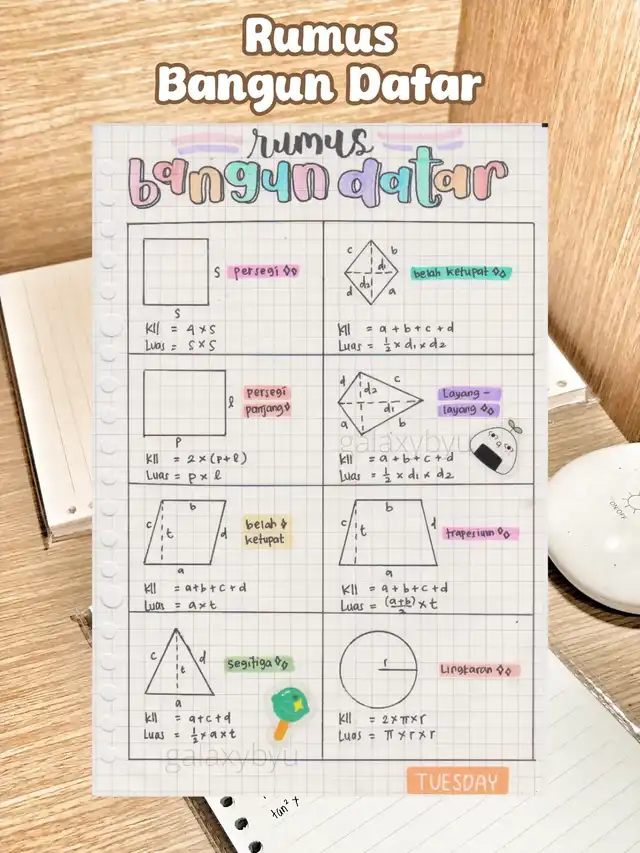 Rumus
Bangun Datar
rumus
bangun datar
s
persegi
s
Kll = 4 x s
Luas = s x s
c b
d1
d2
d a
belah ketupat
Kll = a + b + c + d
Luas = 1/2 x d1 x d2
l
persegi
panjang
p
Kll = 2 x (p + l)
Luas = p x l
d c
d2
d1
a b
Layang -
layang
galaxybyu
Kll = a + b + c + d
Luas = 1/2 x d1 x d2
b
c t d
a
belah
ketupat
Kll = a+b+c+d
Luas = a x t
b
c t d
a
trapesium
Kll = a + b + c + d
Luas = (a+b)/2 x t
c d
t
a
segitiga
Kll = a+c+d
Luas = 1/2 x a x t
galaxybyu
r
Lingkaran
Kll = 2 x π x r
Luas = π x r x r
TUESDAY
tan² x
ON/OFF